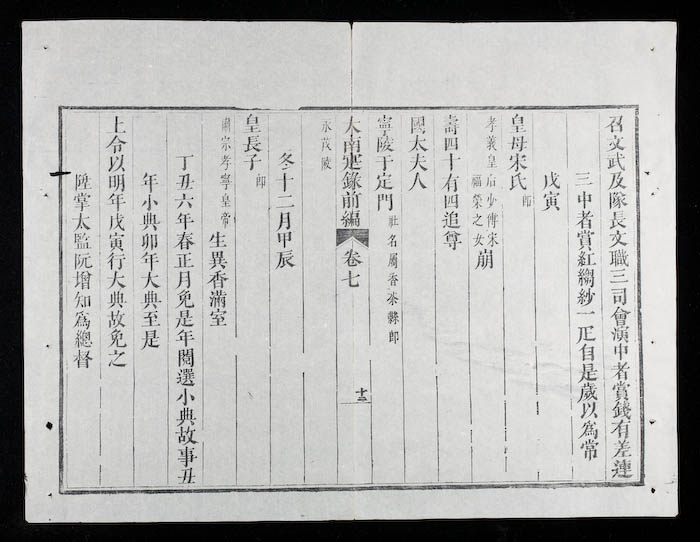 召文武及隊長文職三司會演中者賞錢有差連
三中者賞紅縐紗一疋自是歲以為常
戊寅
皇母宋氏 即孝義皇后少傅宋福榮之女 崩
壽四十有四追尊
國太夫人
寧陵于定門 社名屬香茶縣即永茂陵
大南寔錄前編 卷七 十三
冬十二月甲辰
皇長子 即肅宗孝寧皇帝 生異香滿室
丁丑六年春正月免是年閱選小典故事丑
年小典卯年大典至是
上令以明年戊寅行大典故免之
陞掌太監阮增知為總督